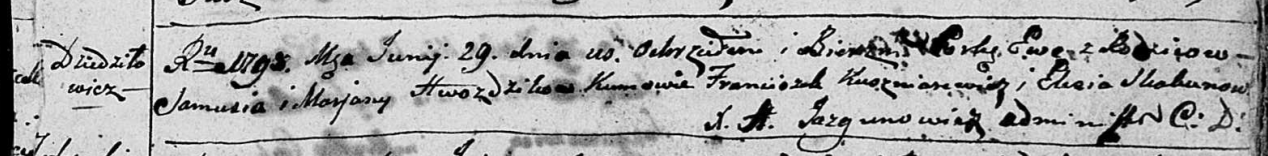 Dziedziło
wicz
Ru 1798. Mca Junij. 29. dnia us. Ochrzciłem i Bierzm. Corkę Ewę z Rodzicow
Jamusia i Marjany Hwozdzikow Kumowie Franciszek Kuszniarewicz i Elesia Skakunow
X. A. Jazgunowicz admin C: D: